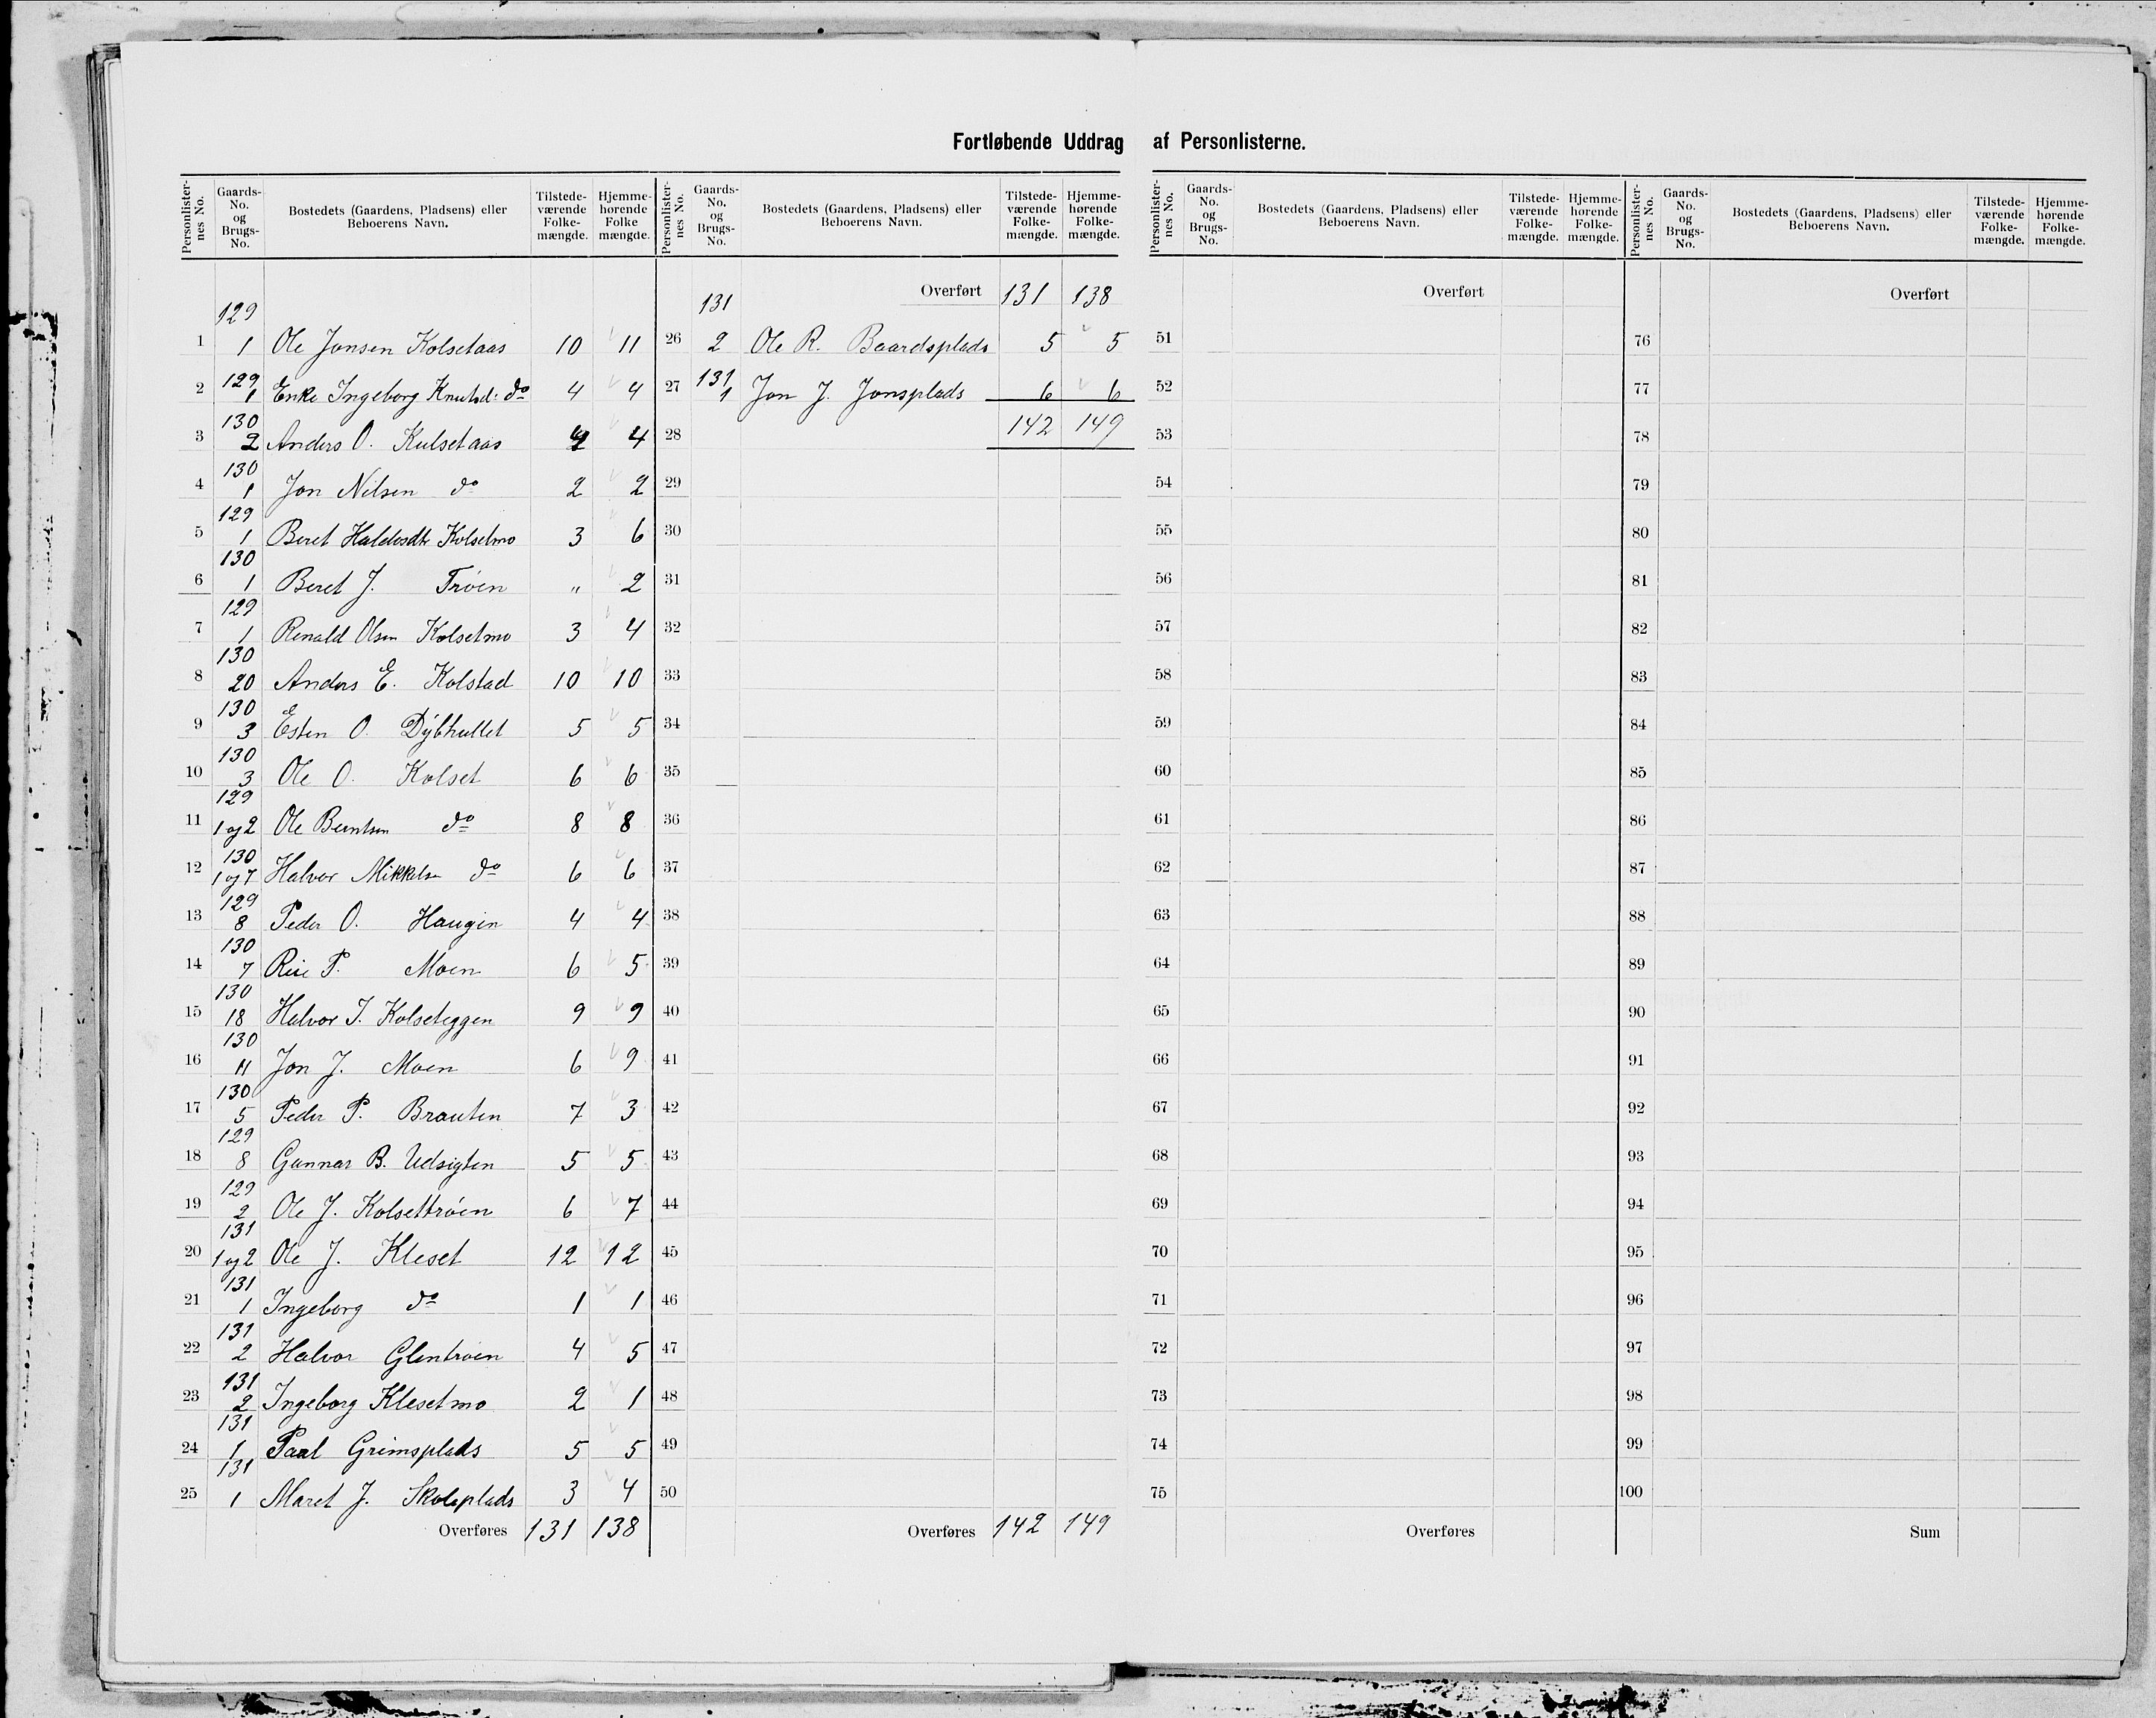 Fortløbende Uddrag af Personlisterne.
Personlister-nes No. | Gaards-No. og Brugs-No. | Bostedets (Gaardens, Pladsens) eller Beboerens Navn. | Tilstede-værende Folke-mængde. | Hjemme-hørende Folke mængde.
1 | 129 1 | Ole Jonsen Kolsetaas | 10 | 11
2 | 129 1 | Enke Ingeborg Knutsd: do | 4 | 4
3 | 130 2 | Anders O. Kulsetaas | 4 | 4
4 | 130 1 | Jon Nilsen do | 2 | 2
5 | 129 1 | Beret Haldosdtr Kolsetmo | 3 | 6
6 | 130 1 | Beret J. Trøen | " | 2
7 | 129 1 | Renald Olsen Kolsetmo | 3 | 4
8 | 130 20 | Anders E. Kolstad | 10 | 10
9 | 130 3 | Esten O. Dybhullet | 5 | 5
10 | 130 3 | Ole O. Kolset | 6 | 6
11 | 129 1 og 2 | Ole Berntsen do | 8 | 8
12 | 130 1 og 7 | Halvor Mikkelsn do | 6 | 6
13 | 129 8 | Peder O. Haugen | 4 | 4
14 | 130 7 | P. Moen | 6 | 5
15 | 130 18 | Halvor J. Kolseteggen | 9 | 9
16 | 130 11 | Jon J. Moen | 6 | 9
17 | 130 5 | Peder P. Brauten | 7 | 3
18 | 129 8 | Gunnar B. Udsigten | 5 | 5
19 | 129 2 | Ole J. Kolsettrøen | 6 | 7
20 | 131 1 og 2 | Ole J. Kleset | 12 | 12
21 | 131 1 | Ingeborg do | 1 | 1
22 | 131 2 | Halvor Glentrøen | 4 | 5
23 | 131 2 | Ingeborg Klesetmo | 2 | 1
24 | 131 1 | Paal Grimsplads | 5 | 5
25 | 131 1 | Maret J. Skoleplads | 3 | 4
Overføres | 131 | 138
Personlister-nes No. | Gaards-No. og Brugs-No. | Bostedets (Gaardens, Pladsens) eller Beboerens Navn. | Tilstede-værende Folke-mængde. | Hjemme-hørende Folke-mængde.
Overført | 131 | 138
26 | 131 2 | Ole R. Baardsplads | 5 | 5
27 | 131 1 | Jon J. Jonsplads | 6 | 6
28 | 142 | 149
29
30
31
32
33
34
35
36
37
38
39
40
41
42
43
44
45
46
47
48
49
50
Overføres | 142 | 149
Personlister-nes No. | Gaards-No. og Brugs-No. | Bostedets (Gaardens, Pladsens) eller Beboerens Navn. | Tilstede-værende Folke-mængde. | Hjemme-hørende Folke-mængde.
Overført
51
52
53
54
55
56
57
58
59
60
61
62
63
64
65
66
67
68
69
70
71
72
73
74
75
Overføres
Personlister-nes No. | Gaards-No. og Brugs-No. | Bostedets (Gaardens, Pladsens) eller Beboerens Navn. | Tilstede-værende Folke-mængde. | Hjemme-hørende Folke-mængde.
Overført
76
77
78
79
80
81
82
83
84
85
86
87
88
89
90
91
92
93
94
95
96
97
98
99
100
Sum